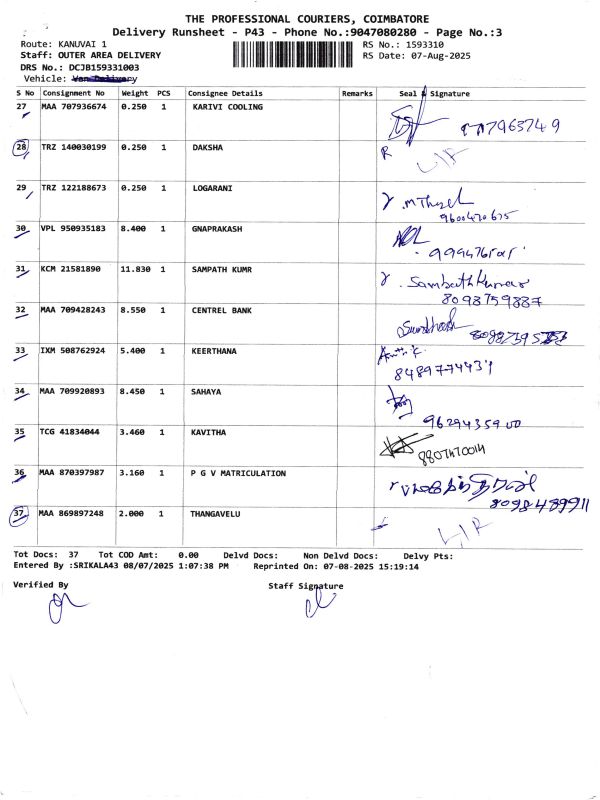 THE PROFESSIONAL COURIERS, COIMBATORE
Delivery Runsheet - P43 - Phone No.:9047080280 - Page No.:3
Route: KANUVAI 1 RS No.: 1593310
Staff: OUTER AREA DELIVERY RS Date: 07-Aug-2025
DRS No.: DCJB159331003
Vehicle: Van Delivery
S No Consignment No Weight PCS Consignee Details Remarks Seal & Signature
27 MAA 707936674 0.250 1 KARIVI COOLING
28 TRZ 140030199 0.250 1 DAKSHA R L/R
29 TRZ 122188673 0.250 1 LOGARANI
30 VPL 950935183 8.400 1 GNAPRAKASH
31 KCM 21581890 11.830 1 SAMPATH KUMR Sambath Kumar
8098759887
32 MAA 709428243 8.550 1 CENTREL BANK
33 IXM 508762924 5.400 1 KEERTHANA
34 MAA 709920893 8.450 1 SAHAYA
35 TCG 41834044 3.460 1 KAVITHA
36 MAA 870397987 3.160 1 P G V MATRICULATION
8098489911
37 MAA 869897248 2.000 1 THANGAVELU L/R
Tot Docs: 37 Tot COD Amt: 0.00 Delvd Docs: Non Delvd Docs: Delvy Pts:
Entered By :SRIKALA43 08/07/2025 1:07:38 PM Reprinted On: 07-08-2025 15:19:14
Verified By Staff Signature